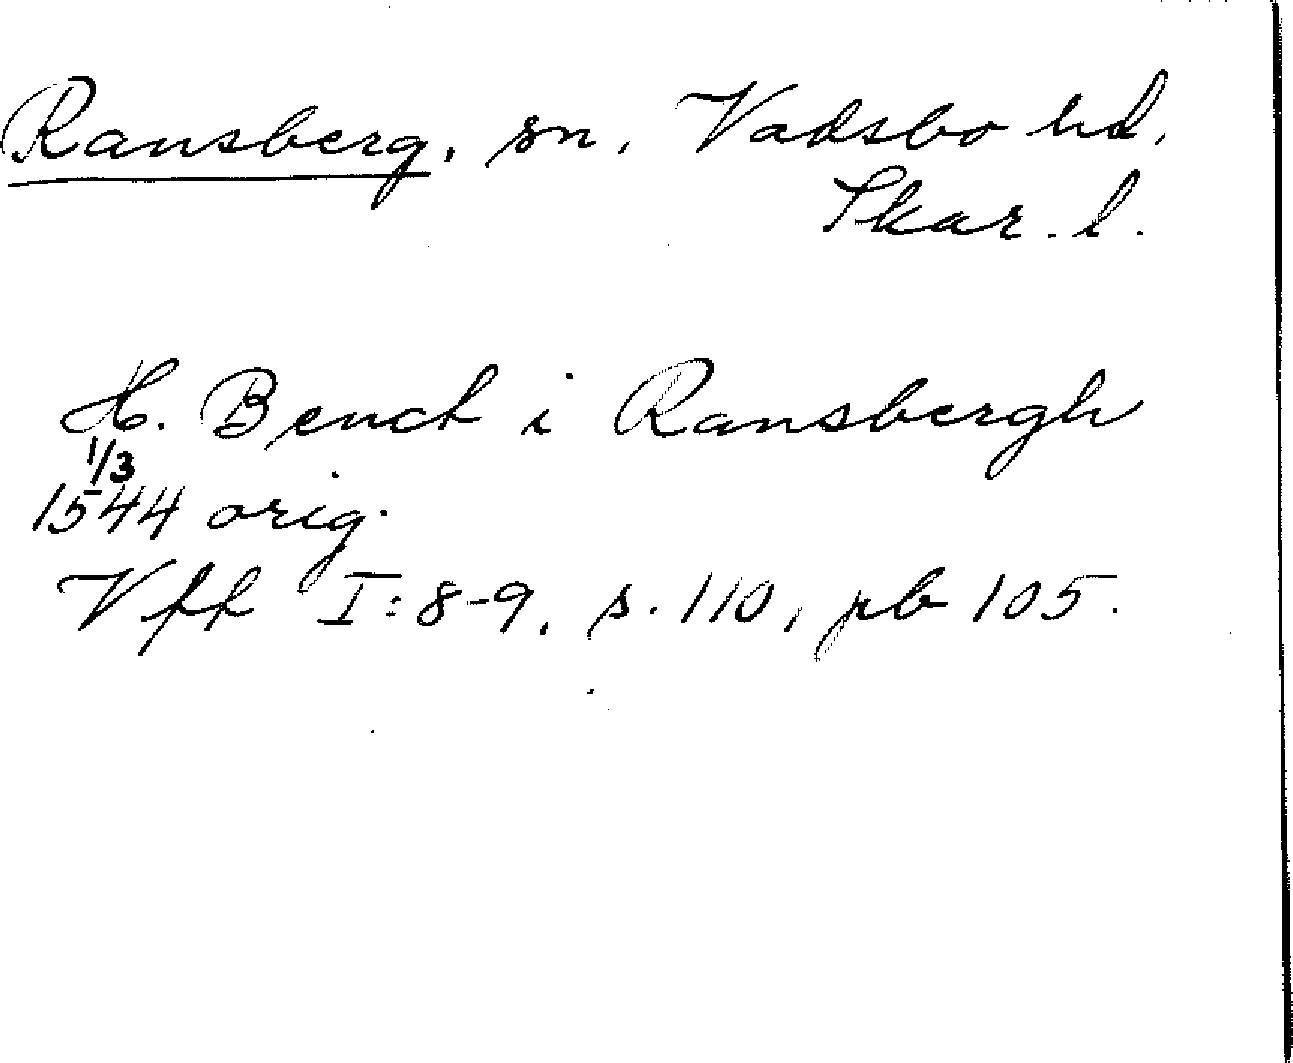 Ransberg, sn, Vadsbo hd,
Skar. l.
H. Benct i Ransbergh
1/3
1544 orig.
Vff I:8-9, s. 110, pb 105.